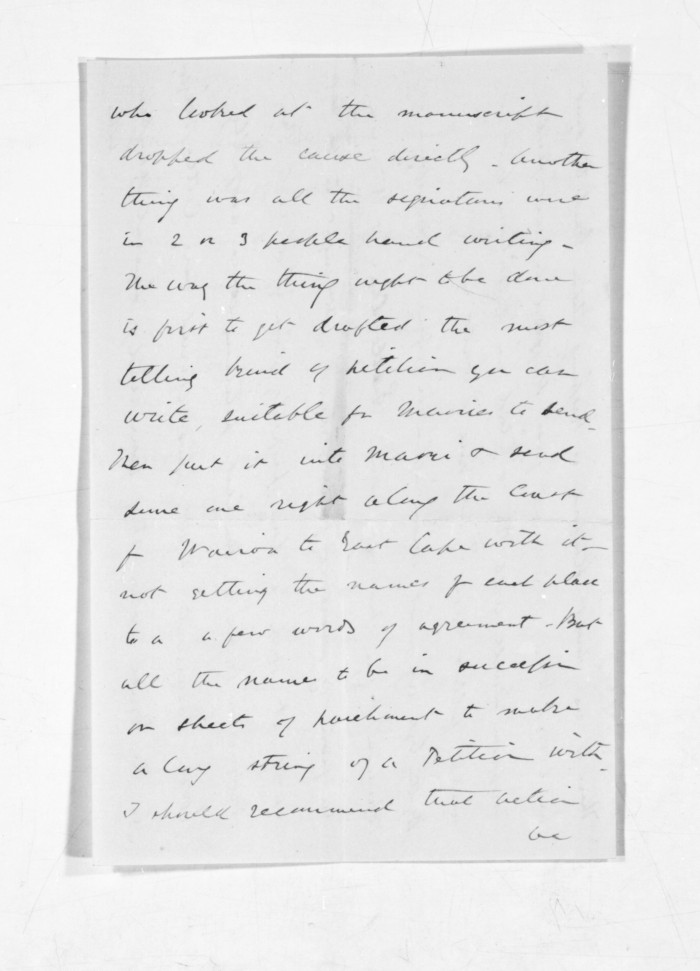 who looked at the manuscript
dropped the cause directly - Another
thing was all the signatures were
in 2 or 3 people hand writing -
The way the thing ought to be done
is first to get drafted the most
telling kind of petition you can
write, suitable for Maories to send.
Then put it into Maori & send
some one right along the Coast
fr Wairoa to East Cape with it -
not getting the names fr each place
to a a few words of agreement - But
all the names to be in succession
on sheets of parchment to make
a long string of a Petition with.
I should recommend that action
be